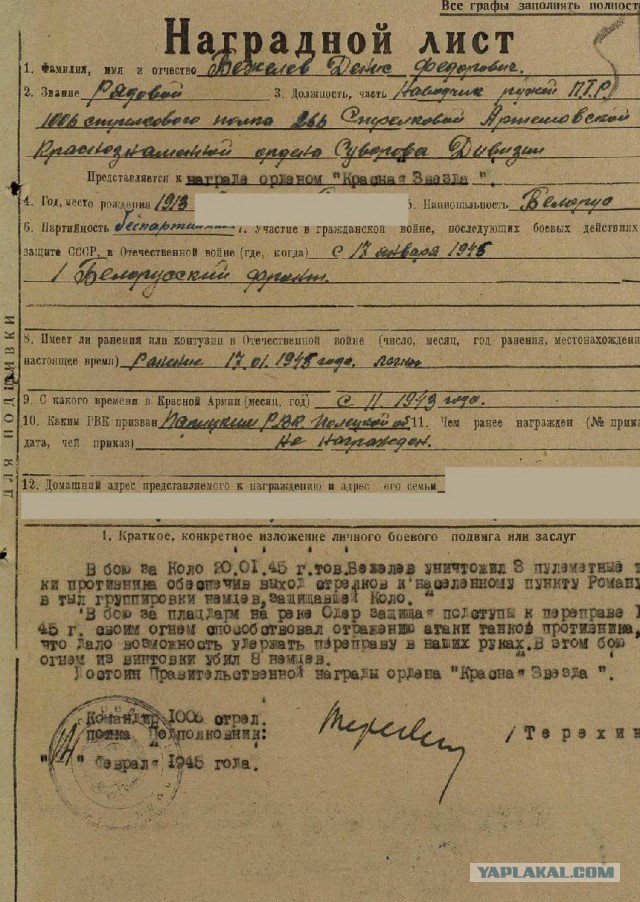 Все графы заполнять полность
Наградной лист
1. Фамилия, имя и отчество Бежелев Денис Федорович.
2. Звание Рядовой 3. Должность, часть Наводчик ружей П.Т.Р.
1006 стрелкового полка 266 Стрелковой Артемовской
Краснознаменной ордена Суворова Дивизии
Представляется к награде орденом "Красная Звезда".
4. Год, место рождения 1913 5. Национальность Белорус
6. Партийность беспартийный 7. Участие в гражданской войне, последующих боевых действиях
защите СССР, в Отечественной войне (где, когда) с 17 января 1945
1 Белорусский фронт.
ДЛЯ ПОДШИВКИ
8. Имеет ли ранения или контузии в Отечественной войне (число, месяц, год ранения, местонахождени
настоящее время) Ранение 17.01.1945 года. легко
9. С какого времени в Красной Армии (месяц, год) с 11.1943 года.
10. Каким РВК призван РВК 11. Чем ранее награжден (№ прика
дата, чей приказ) Не награжден.
12. Домашний адрес представляемого к награждению и адрес его семьи
1. Краткое, конкретное изложение личного боевого подвига или заслуг
В бою за Коло 20.01.45 г.тов.Бежелев уничтожил 3 пулеметные т
ки противника обеспечив выход стрелков к населенному пункту Роману
в тыл группировки немцев,защищавшей Коло.
В бою за плацдарм на реке Одер защищая подступы к переправе
45 г. своим огнем способствовал отражению атаки танков противника,
что дало возможность удержать переправу в наших руках.В этом бою
огнем из винтовки убил 8 немцев.
Достоин Правительственной награды ордена "Красная Звезда ".
Командир 1006 стрел.
полка Подполковник: / Терехин
" " февраля 1945 года.
YAPLAKAL.COM